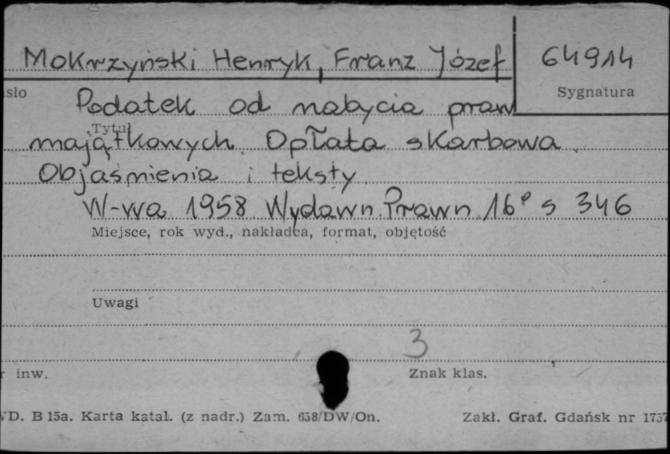 Mokrzyński Henryk, Franz Józef 64914
sło Sygnatura
Podatek od nabycia praw
Tytuł
majątkowych. Opłata skarbowa.
Objaśnienia i teksty
W-wa 1958 Wydawn. Prawn 16° s 346
Miejsce, rok wyd., nakładca, format, objętość
Uwagi
3
r inw. Znak klas.
VD. B 15a. Karta katal. (z nadr.) Zam. 638/DW/On. Zakł. Graf. Gdańsk nr 1757